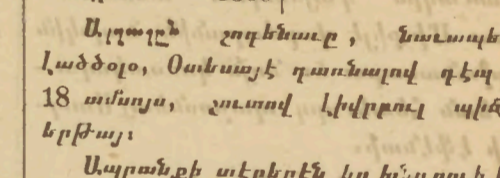 շոգենաւը, նաւապե
Լաձձօլօ, Օտեսայէ դառնալով դէպ
18 ամսոյս, շուտով Լիվրբուլ պիտ
երթայ։
Ապրանքի տէրերէն կը